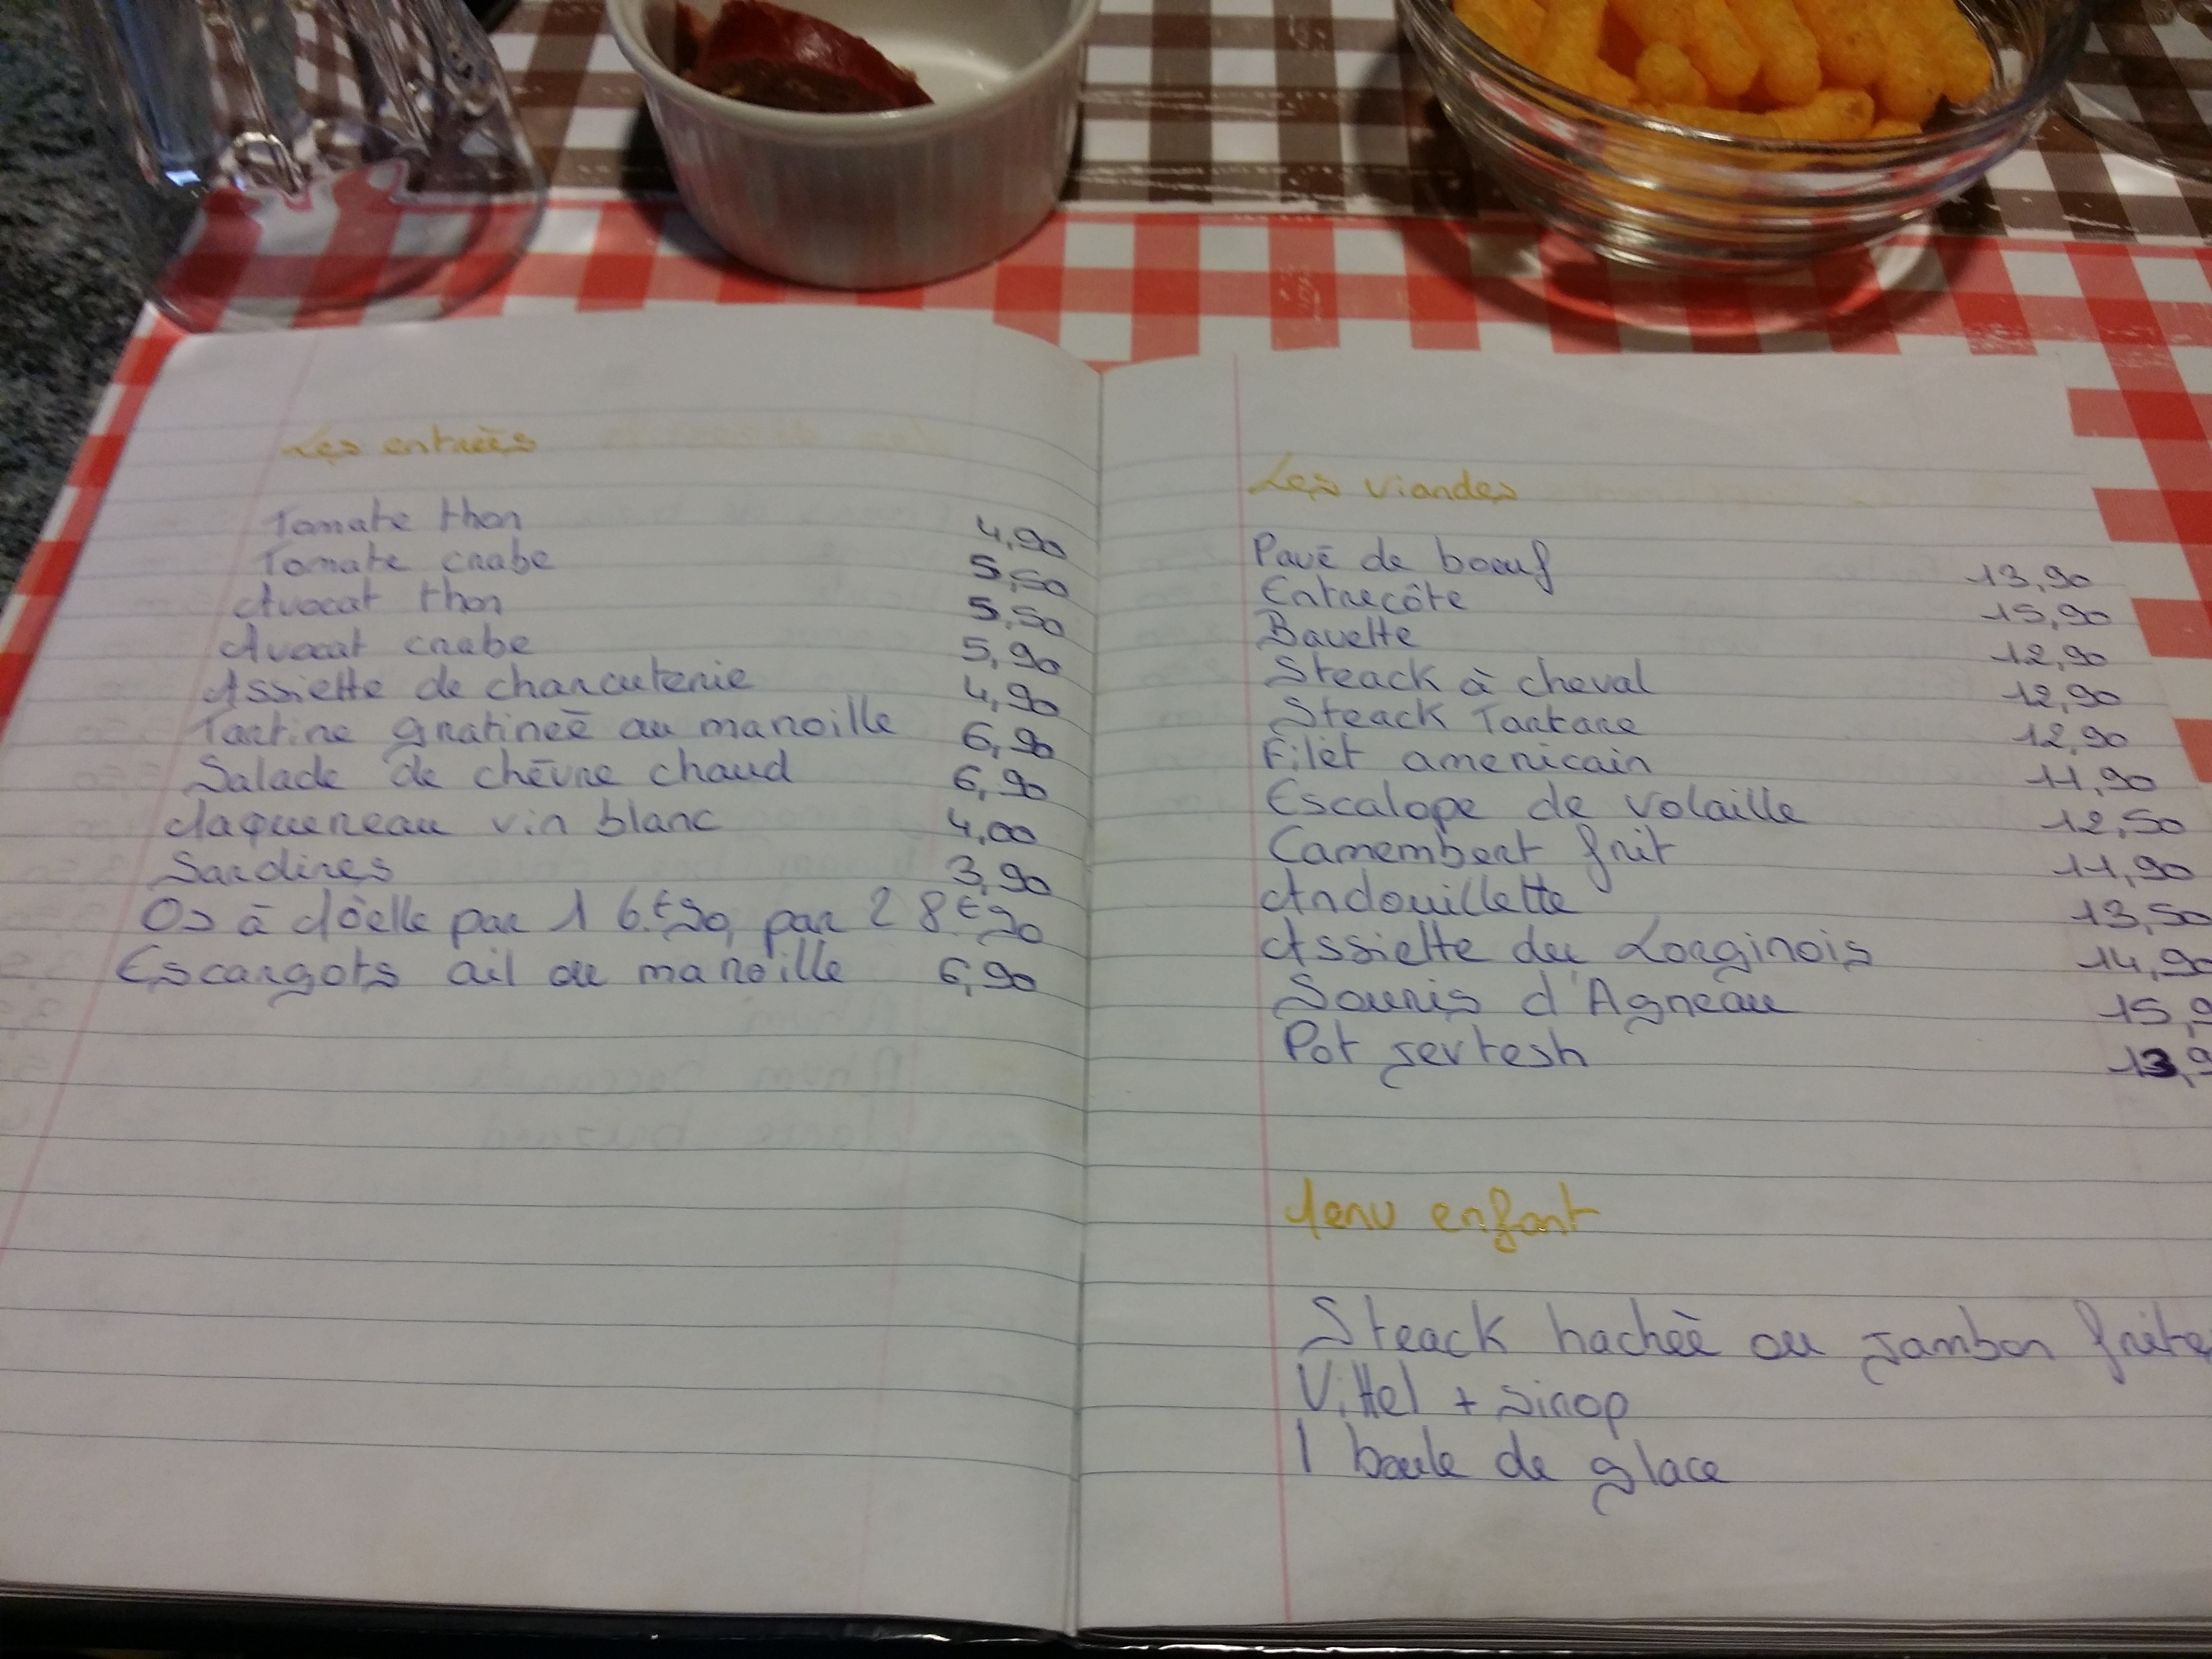 Les entrées
Tomate thon 4,90
Tomate crabe 5,50
Avocat thon 5,50
Avocat crabe 5,90
Assiette de charcuterie 4,90
Tartine gratineé au maroille 6,90
Salade de chèvre chaud 6,90
Maquereau vin blanc 4,00
Sardines 3,90
Os à Möelle par 1 6.€90, par 2 8.€90
Escargots ail ou maroille 6,90
Les viandes
Pavé de boeuf 13,90
Entrecôte 15,90
Bavette 12,90
Steack à cheval 12,90
Steack Tartare 12,90
Filet americain 11,90
Escalope de volaille 12,50
Camembert frit 11,90
Andouillette 13,50
Assiette du Lorginois 14,90
Souris d'Agneau 15,9
Pot jevtesh 13,9
Menu enfant
Steack hacheè ou jambon frite
Vittel + sirop
1 boule de glace